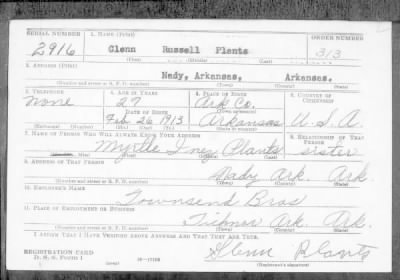 SERIAL NUMBER 1. NAME (Print) ORDER NUMBER
2916 Glenn Russell Plants 313
(First) (Middle) (Last)
2. ADDRESS (Print)
Nady, Arkansas, Arkansas.
(Number and street or R. F. D. number) (Town) (County) (State)
3. TELEPHONE 4. AGE IN YEARS 5. PLACE OF BIRTH 6. COUNTRY OF CITIZENSHIP
None 27 Ark Co.
DATE OF BIRTH (Town or county)
Feb 26 1913 Arkansas U.S.A.
(Exchange) (Number) (Mo.) (Day) (Yr.) (State or country)
7. NAME OF PERSON WHO WILL ALWAYS KNOW YOUR ADDRESS 8. RELATIONSHIP OF THAT PERSON
Myrtle Inez Plants sister
(First) (Middle) (Last)
9. ADDRESS OF THAT PERSON
Nady Ark. Ark.
(Number and street or R. F. D. number) (Town) (County) (State)
10. EMPLOYER'S NAME
Townsend Bros
11. PLACE OF EMPLOYMENT OR BUSINESS
Tichnor Ark. Ark.
(Number and street or R. F. D. number) (Town) (County) (State)
I AFFIRM THAT I HAVE VERIFIED ABOVE ANSWERS AND THAT THEY ARE TRUE.
REGISTRATION CARD Glenn Plants
D. S. S. FORM 1 16—17105 (Registrant's signature)